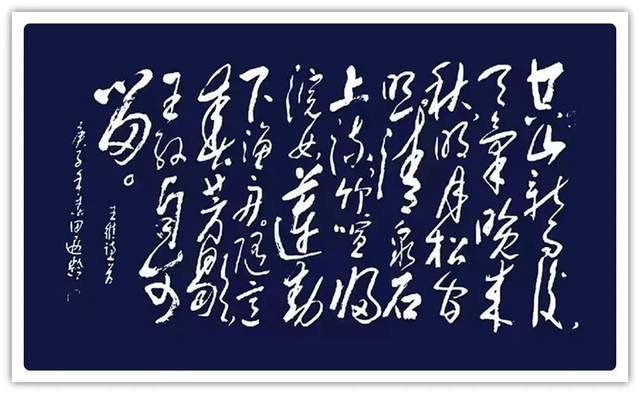 空山新雨後,
天氣晚来
秋明月松间
照清泉石
上流竹喧归
浣女莲动
下渔舟。随意
春芳歇,
王孙自可
留。
王维诗首
庚子年田